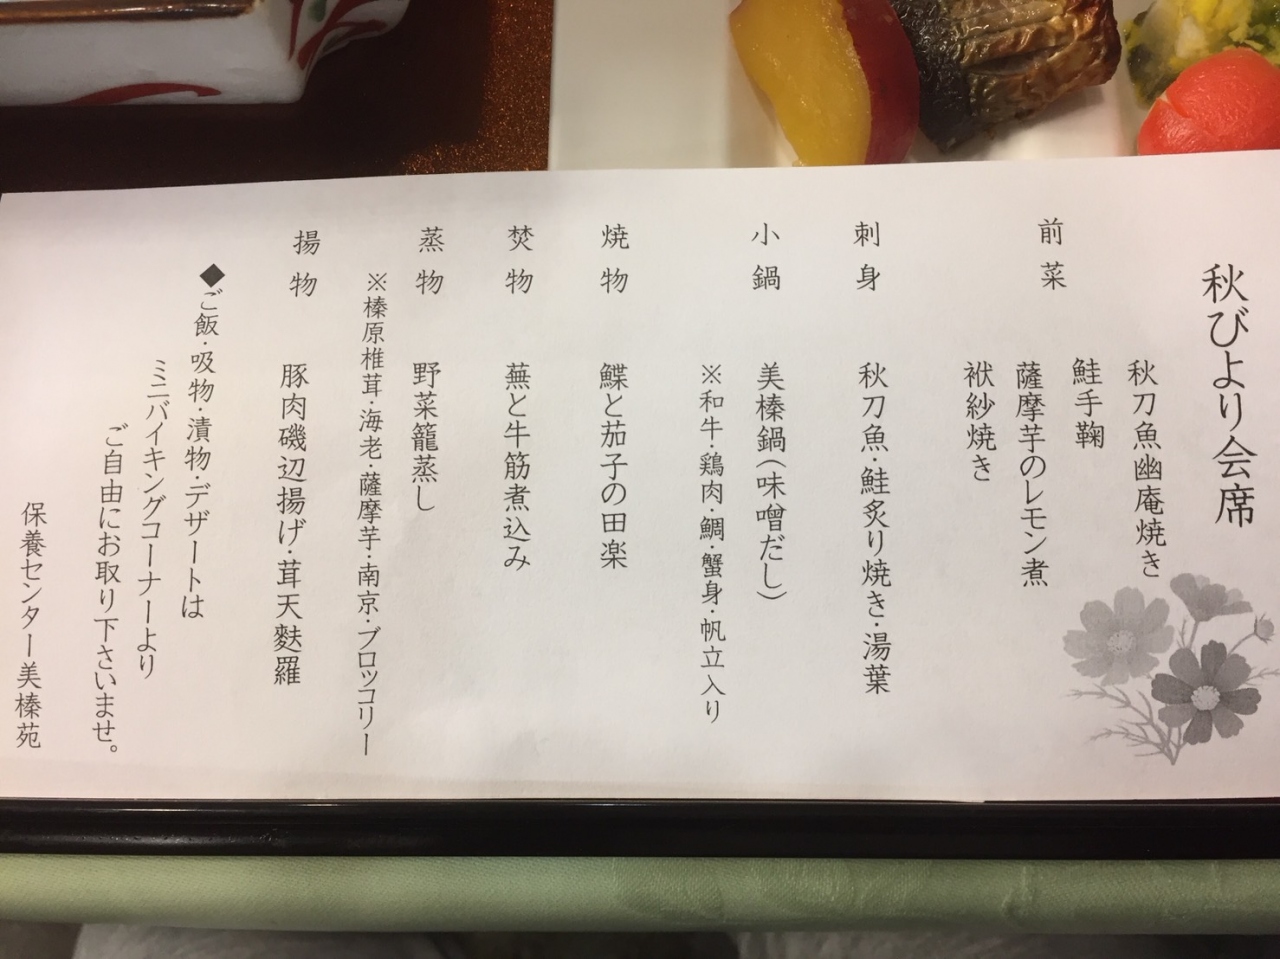 秋びより会席
前菜
秋刀魚幽庵焼き
鮭手鞠
薩摩芋のレモン煮
袱紗焼き
刺身
秋刀魚・鮭炙り焼き・湯葉
小鍋
美榛鍋(味噌だし)
※和牛・鶏肉・鯛・蟹身・帆立入り
焼物
鰈と茄子の田楽
焚物
蕪と牛筋煮込み
蒸物
野菜籠蒸し
※榛原椎茸・海老・薩摩芋・南京・ブロッコリー
揚物
豚肉磯辺揚げ・茸天麩羅
◆ご飯・吸物・漬物・デザートは
ミニバイキングコーナーより
ご自由にお取り下さいませ。
保養センター美榛苑